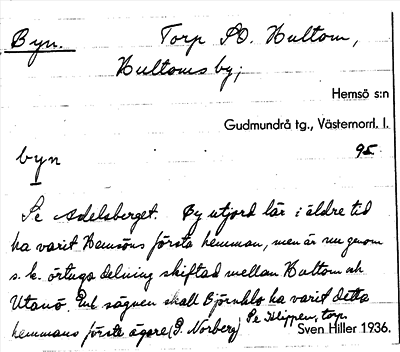 Byn. Torp SO. Hultom,
Hultoms by;
Hemsö s:n
Gudmundrå tg., Västernorrl. l.
95.
byn
I
Se Adelsberget. By utjord lär i äldre tid
ha varit Hemsöns första hemman, men är nu genom
s. k. örtugs delning skiftad mellan Hultom och
Utanö. Enl sägnen skall Björnklo ha varit detta
hemmans förste ägare (P. Norberg) Se Klippen, torp.
Sven Hiller 1936.